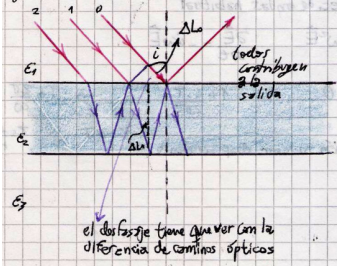 2 1 0
i
ΔL₀
todos
contribuyen
a la
salida
ε₁
ε₂
ΔL₁
ε₃
el desfasaje tiene que ver con la
diferencia de caminos ópticos